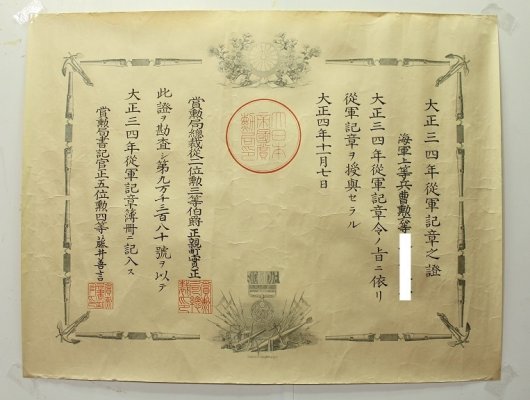 大正三四年從軍記章之證
海軍上等兵曹勲六等
大正三四年從軍記章令ノ旨ニ依リ
從軍記章ヲ授與セラル
大正四年十一月七日
大日本
帝國賞
勲局印
賞勲局總裁從二位勲三等伯爵正親町實正
此證ヲ勘査シ第九万千三百八十號ヲ以テ
大正三四年從軍記章簿冊ニ記入ス
賞勲局書記官正五位勲四等藤井善言